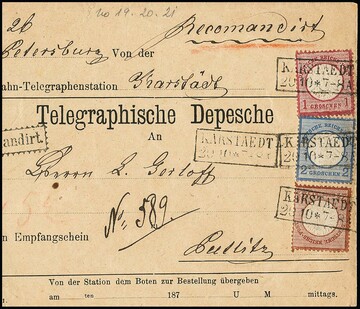 No 19-20-21
26
Recomandirt
Petersburg Von der
ahn-Telegraphenstation Karstädt
Telegraphische Depesche
An
andirt.
Herrn L. Gerloff
No. 589
n Empfangschein
Putlitz
Von der Station dem Boten zur Bestellung übergeben
am ten 187 U M mittags.
KARSTAEDT
29 10 * 7-8
1 GROSCHEN 1
KARSTAEDT
29 10 * 7-8
KARSTAEDT
29 10 * 7-8
2 GROSCHEN 2
KARSTAEDT
29 10 * 7-8